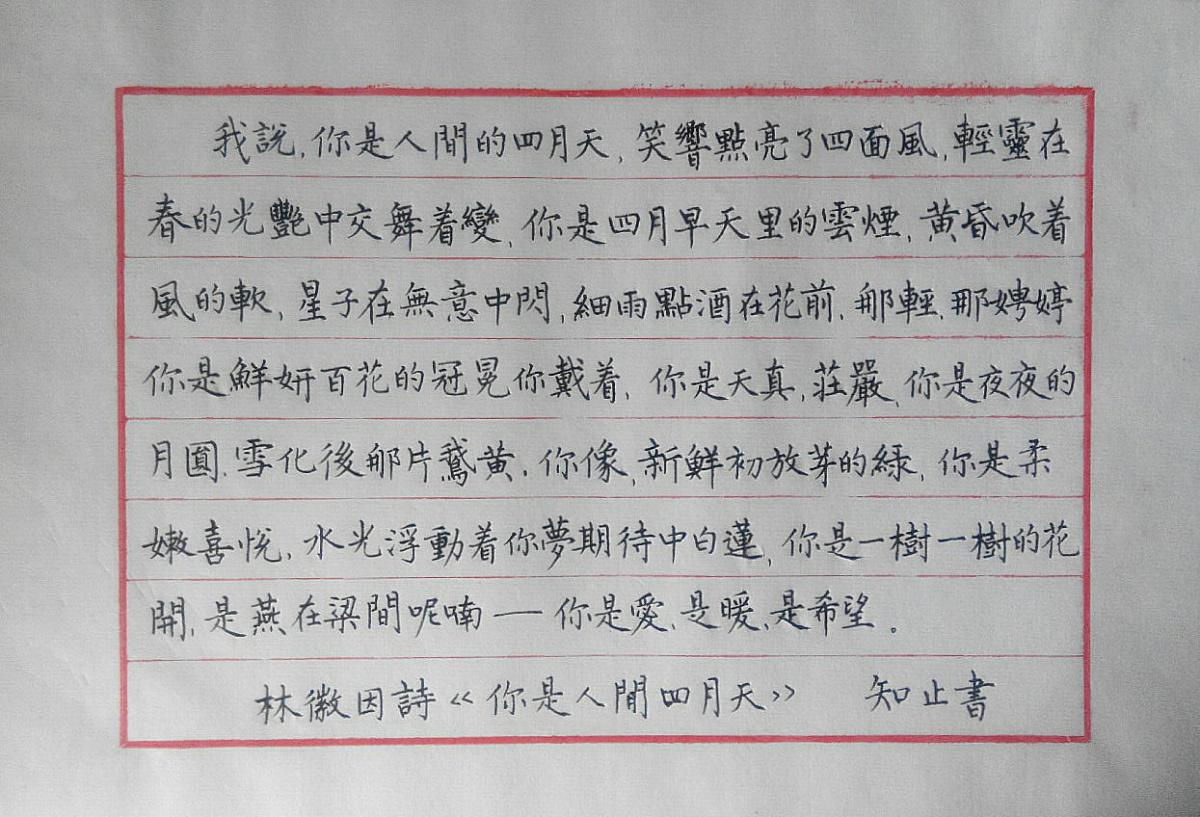 我説，你是人間的四月天，笑響點亮了四面風，輕靈在
春的光艷中交舞着變，你是四月早天里的雲煙，黄昏吹着
風的軟，星子在無意中閃，細雨點酒在花前，那輕，那娉婷
你是鮮妍百花的冠冕你戴着，你是天真，莊嚴，你是夜夜的
月圓，雪化後那片鵝黄，你像，新鮮初放芽的緑，你是柔
嫩喜悦，水光浮動着你夢期待中白蓮，你是一樹一樹的花
開，是燕在梁間呢喃——你是愛，是暖，是希望。
林徽因詩《你是人間四月天》 知止書